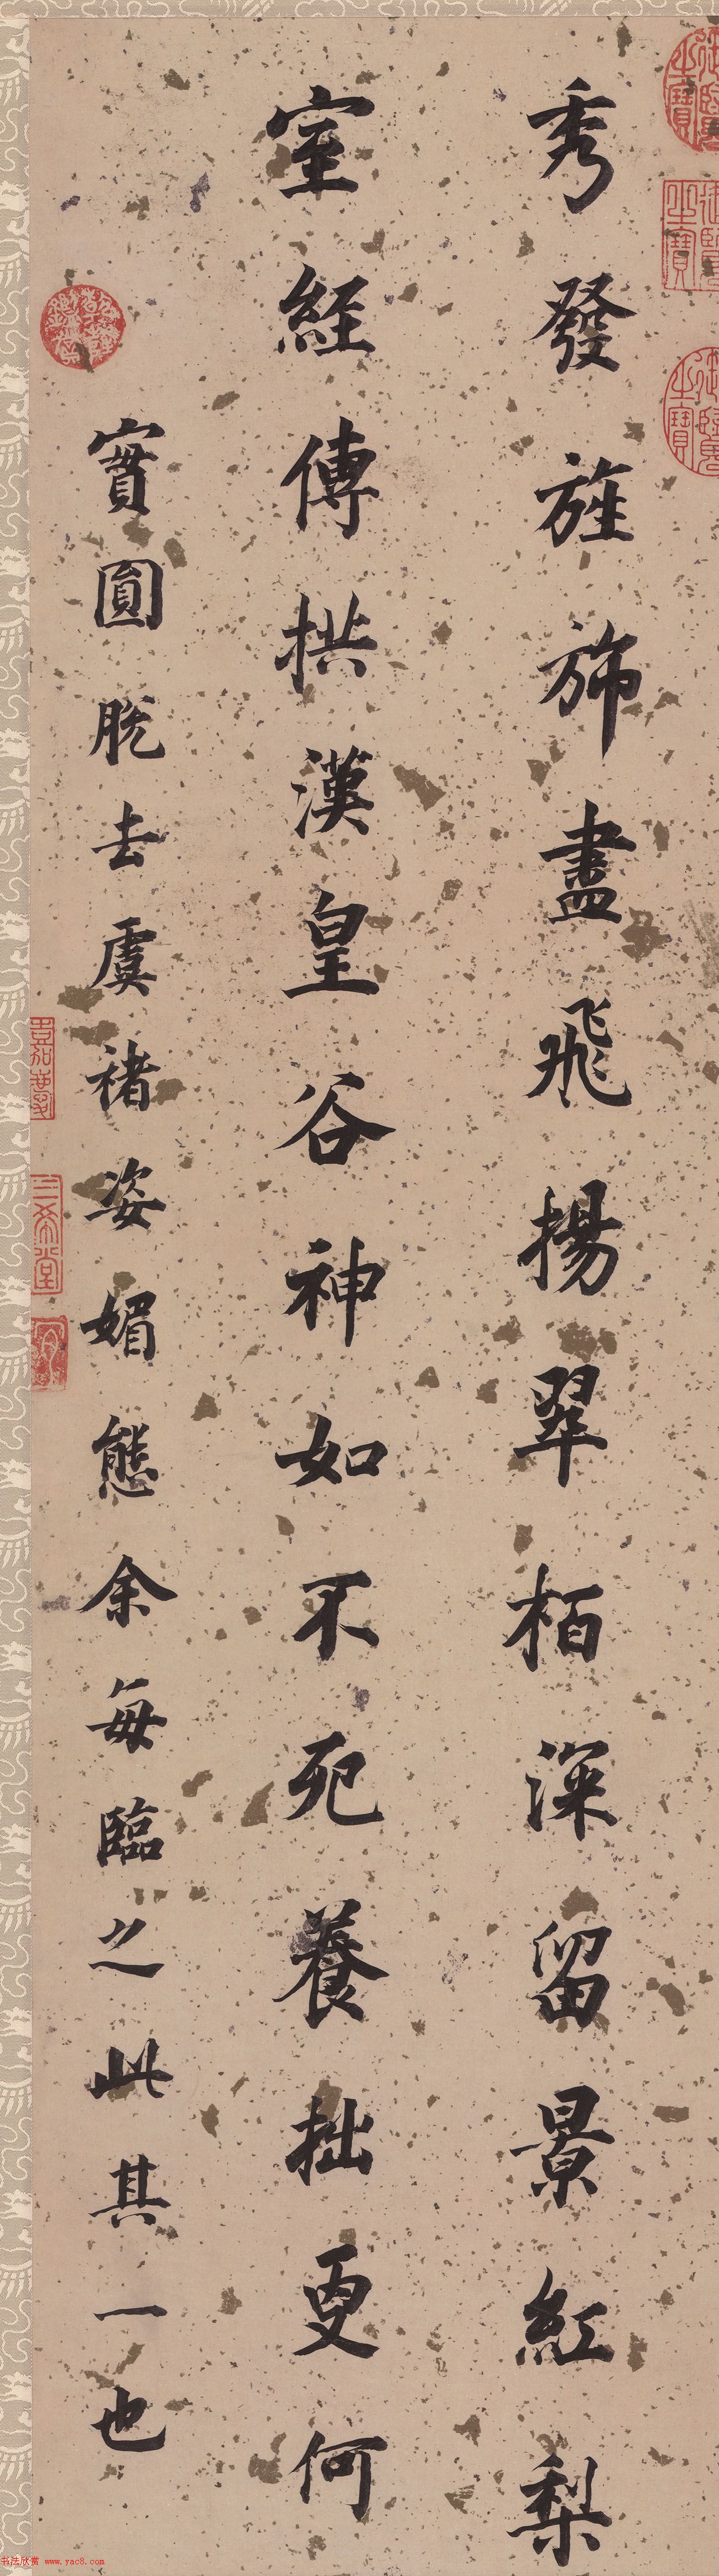 秀發旌旆盡飛揚翠栢深留景紅梨
室經傳拱漢皇谷神如不死養拙更何
實圓脫去虞褚姿媚態余每臨之此其一也
三希堂
书法欣赏 www.yac8.com